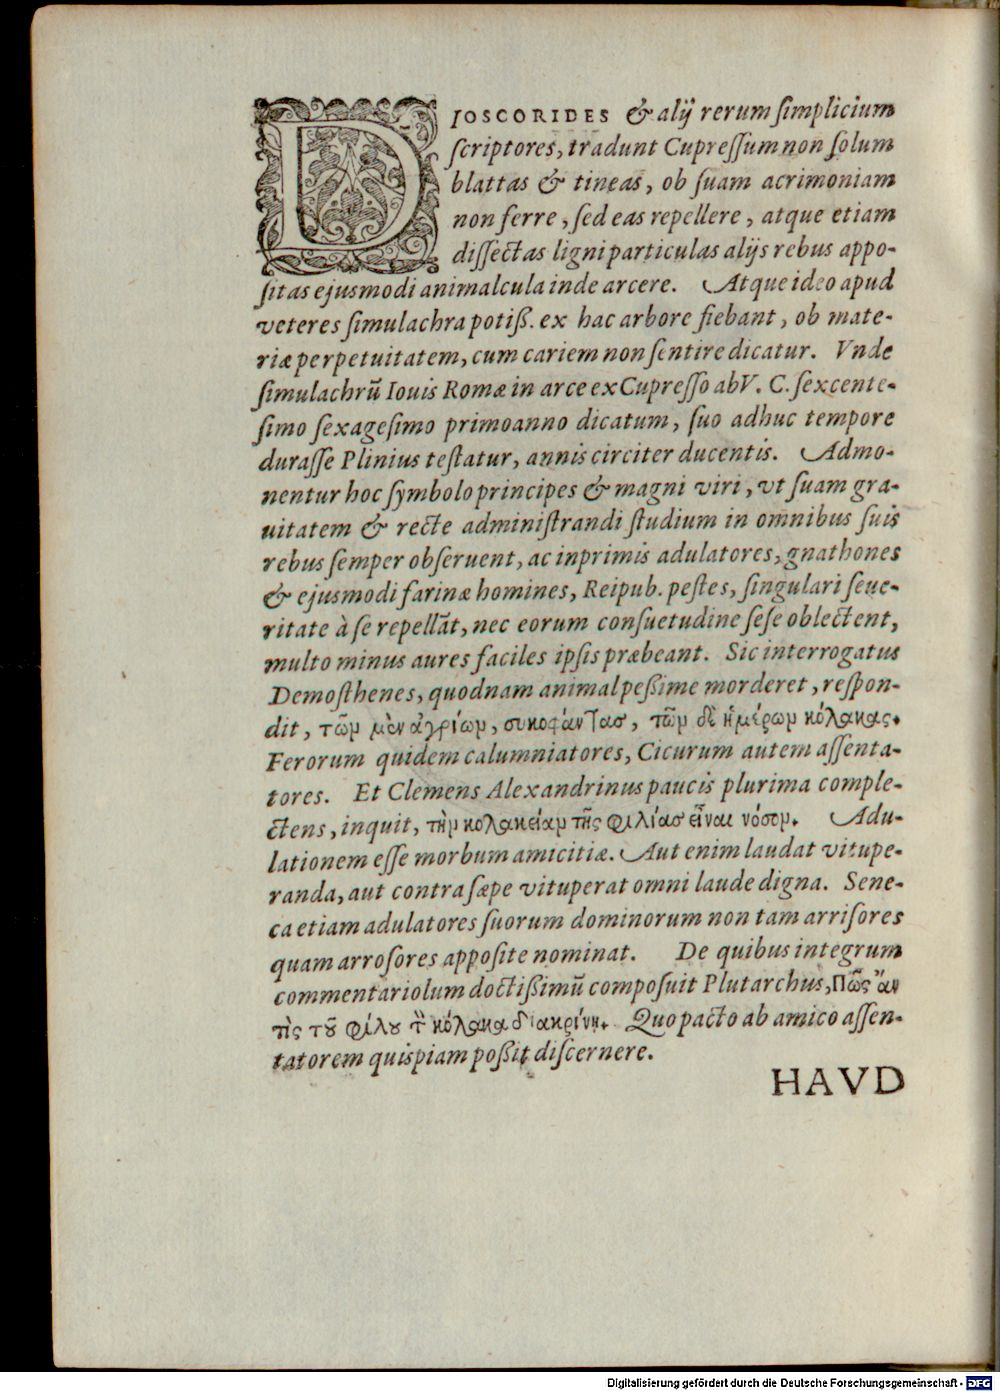 DIOSCORIDES & alij rerum ſimplicium
ſcriptores, tradunt Cupreſſum non ſolum
blattas & tineas, ob ſuam acrimoniam
non ferre, ſed eas repellere, atque etiam
diſſectas ligni particulas alijs rebus appo-
ſitas ejusmodi animalcula inde arcere. Atque ideo apud
veteres ſimulachra potiß. ex hac arbore fiebant, ob mate-
riæ perpetuitatem, cum cariem non ſentire dicatur. Vnde
ſimulachrũ Iouis Romæ in arce ex Cupreſſo ab V. C. ſexcente-
ſimo ſexageſimo primo anno dicatum, ſuo adhuc tempore
duraſſe Plinius teſtatur, annis circiter ducentis. Admo-
nentur hoc ſymbolo principes & magni viri, vt ſuam gra-
uitatem & recte adminiſtrandi ſtudium in omnibus ſuis
rebus ſemper obſeruent, ac inprimis adulatores, gnathones
& ejusmodi farinæ homines, Reipub. peſtes, ſingulari ſeue-
ritate à ſe repellãt, nec eorum conſuetudine ſeſe oblectent,
multo minus aures faciles ipſis præbeant. Sic interrogatus
Demoſthenes, quodnam animal peßime morderet, reſpon-
dit, τῶν μὲν ἀγρίων, συκοφάντασ, τῶν δὲ ἡμέρων κόλακας.
Ferorum quidem calumniatores, Cicurum autem aſſenta-
tores. Et Clemens Alexandrinus paucis plurima comple-
ctens, inquit, τὴν κολακείαν τῆς φιλίασ εἶναι νόσον. Adu-
lationem eſſe morbum amicitiæ. Aut enim laudat vitupe-
randa, aut contra ſæpe vituperat omni laude digna. Sene-
ca etiam adulatores ſuorum dominorum non tam arriſores
quam arroſores appoſite nominat. De quibus integrum
commentariolum doctißimũ compoſuit Plutarchus, Πῶς ἄν
τὶς τοῦ φίλου τὸν κόλακα διακρίνῃ. Quo pacto ab amico aſſen-
tatorem quiſpiam poßit diſcernere.
HAVD
Digitalisierung gefördert durch die Deutsche Forschungsgemeinschaft - DFG